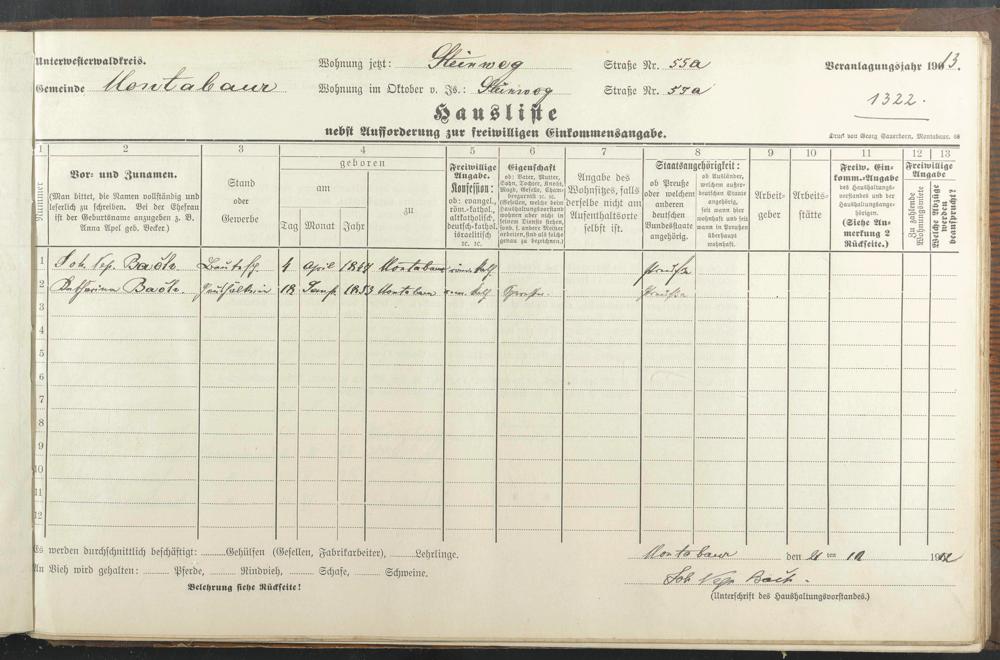 Unterwesterwaldkreis.
Wohnung jetzt: Steinweg Straße Nr. 55a
Veranlagungsjahr 1913.
Gemeinde Montabaur
Wohnung im Oktober v. Js.: Steinweg Straße Nr. 55a
1322.
Hausliste
nebst Aufforderung zur freiwilligen Einkommensangabe.
Druck von Georg Sauerborn, Montabaur.
1 2 3 4 5 6 7 8 9 10 11 12 13
Nummer
Vor- und Zunamen.
(Man bittet, die Namen vollständig und
leserlich zu schreiben. Bei der Ehefrau
ist der Geburtsname anzugeben z. B.
Anna Apel geb. Becker.)
Stand
oder
Gewerbe
geboren
am
zu
Tag Monat Jahr
Freiwillige
Angabe.
Konfession:
ob: evangel.,
röm.-kathol.,
altkatholisch,
deutsch-kathol.
israelitisch
ec. ec.
Eigenschaft
ob: Vater, Mutter,
Sohn, Tochter, Knecht,
Magd, Geselle, Cham-
bregarnist ec. ec.
(Gesellen, welche beim
Haushaltungsvorstand
wohnen aber nicht in
seinem Dienste stehen,
sond. f. andere Meister
arbeiten, sind als solche
genau zu bezeichnen.)
Angabe des
Wohnsitzes, falls
derselbe nicht am
Aufenthaltsorte
selbst ist.
Staatsangehörigkeit:
ob Preuße
oder welchem
anderen
deutschen
Bundesstaate
angehörig.
ob Ausländer,
welchem außer-
deutschen Staate
angehörig,
seit wann hier
wohnhaft und seit
wann in Preußen
überhaupt
wohnhaft.
Arbeit-
geber
Arbeits-
stätte
Freiw. Ein-
komm.-Angabe
des Haushaltungs-
vorstandes und der
Haushaltungsange-
hörigen.
(Siehe An-
merkung 2
Rückseite.)
Freiwillige
Angabe
Zu zahlende
Wohnungsmiete
Welche Abzüge
werden
beansprucht?
1 Joh. Nep. Bach. 4 April Montabaur Preuße
2 Katharina Bach. 18 1853 Montabaur Preuße
3
4
5
6
7
8
9
10
11
12
Es werden durchschnittlich beschäftigt: Gehülfen (Gesellen, Fabrikarbeiter), Lehrlinge.
Montabaur den ten 1912
An Vieh wird gehalten: Pferde, Rindvieh, Schafe, Schweine.
Joh Nep Bach.
Belehrung siehe Rückseite!
(Unterschrift des Haushaltungsvorstandes.)